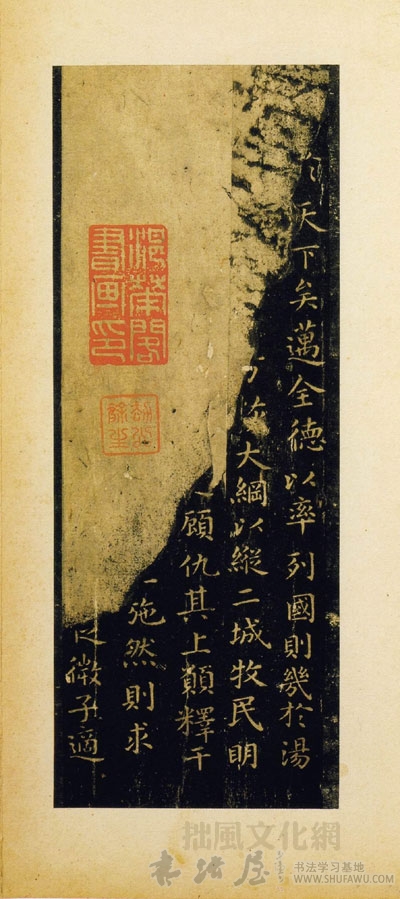 天下矣邁全德以率列國則幾於湯
大綱以縱二城牧民明
顧仇其上願釋干
施然則求
微子適
書畫印
拙風文化網
书法屋
书法学习基地
WWW.SHUFAWU.COM